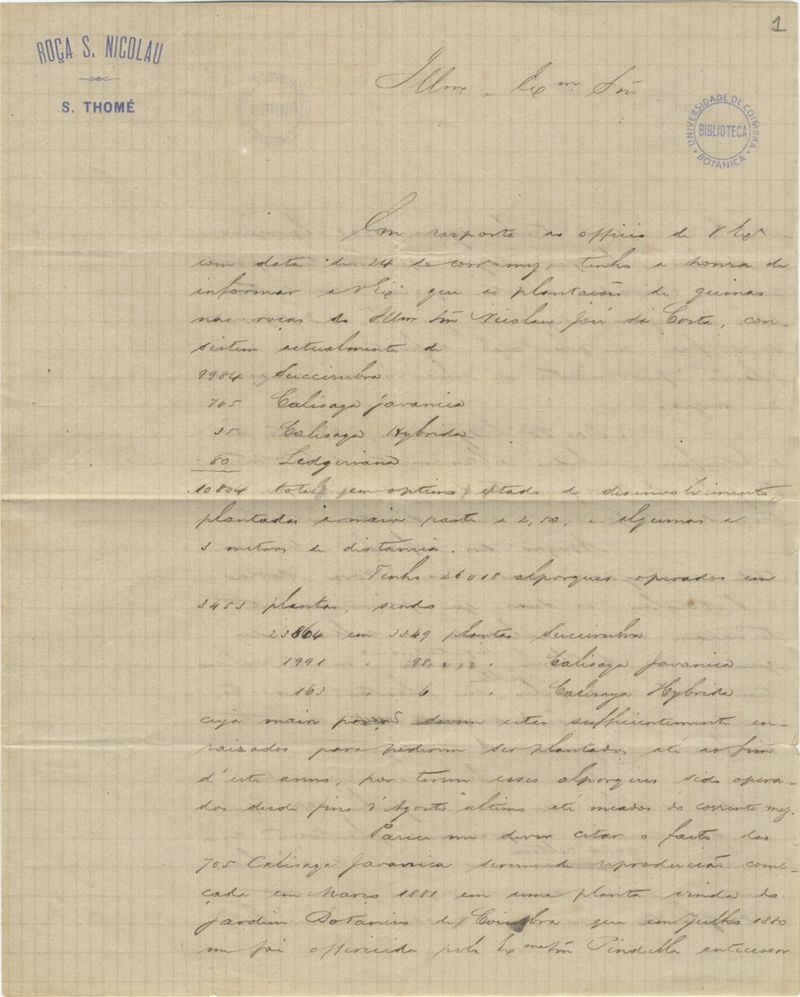 1
ROÇA S. NICOLAU
S. THOMÉ
Illmo e Exmo Snr
UNIVERSIDADE DE COIMBRA
BIBLIOTECA
BOTANICA
Em resposta ao officio de V Exa
com data de 24 do corr. mez, tenho a honra de
informar a V Exa que as plantações de quinas
nas roças do Illmo Snr Nicolau José da Costa, con-
sistem actualmente de
9984 Succirubra
705 Calisaya Javanica
35 Calisaya Hybrida
80 Ledgeriana
10804 total, em optimo estado de desenvolvimento,
plantadas a maior parte a 2,50, e algumas a
3 metros de distancia.
Tenho 26018 alporques operados em
3453 plantas, sendo
23864 em 3349 plantas Succirubra
1991 " 98 " Calisaya Javanica
163 " 6 " Calisaya Hybrida
cuja maior porção devem estar sufficientemente en-
raizados para poderem ser plantados até ao fim
d'este anno, por terem esses alporques sido opera-
dos desde fins d'Agosto ultimo até meados do corrente mez.
Parece me dever citar o facto das
705 Calisaya Javanica serem de reproducção come-
çada em Março 1881 em uma planta vinda do
Jardim Botanico de Coimbra que em Julho 1880
me foi offerecida pelo Exmo Snr Pindella antecessor